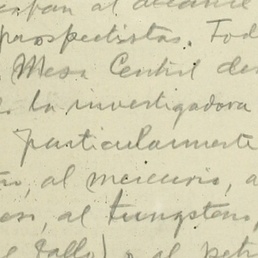 al alcance
prospectistas. Tod
Mesa Central de
la investigadora
particularmente
al mercurio, a
al tungsteno,
fallo) o al pet